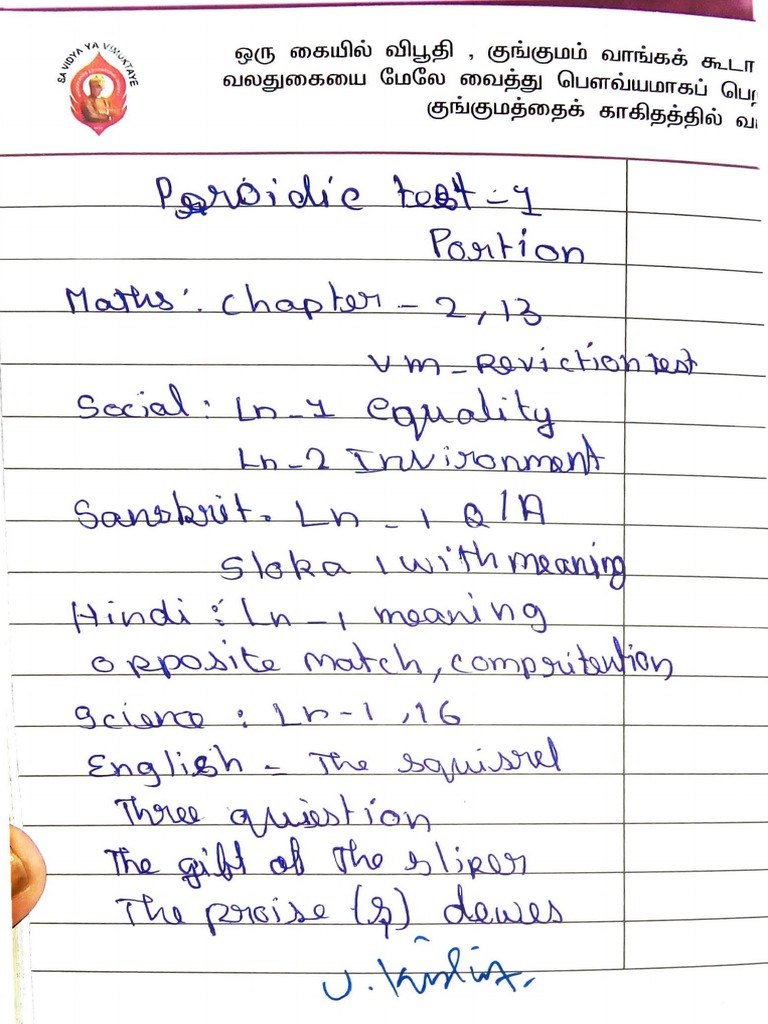 SA VIDYA YA VIMUKTAYE
ஒரு கையில் விபூதி , குங்குமம் வாங்கக் கூடா
வலதுகையை மேலே வைத்து பௌவ்யமாகப் பெ
குங்குமத்தைக் காகிதத்தில் வ
Peroidic test - 1
Portion
Maths : Chapter - 2, 13
V m - Reviction test
Social : Ln - 1 equality
Ln - 2 Invironment
Sanskrit. Ln - 1 Q/A
Sloka 1 with meaning
Hindi : Ln - 1 meaning
opposite match, compritention
Science : Ln - 1, 16
English - The squisrel
Three quiestion
The gift of the sliper
The proise () dewes